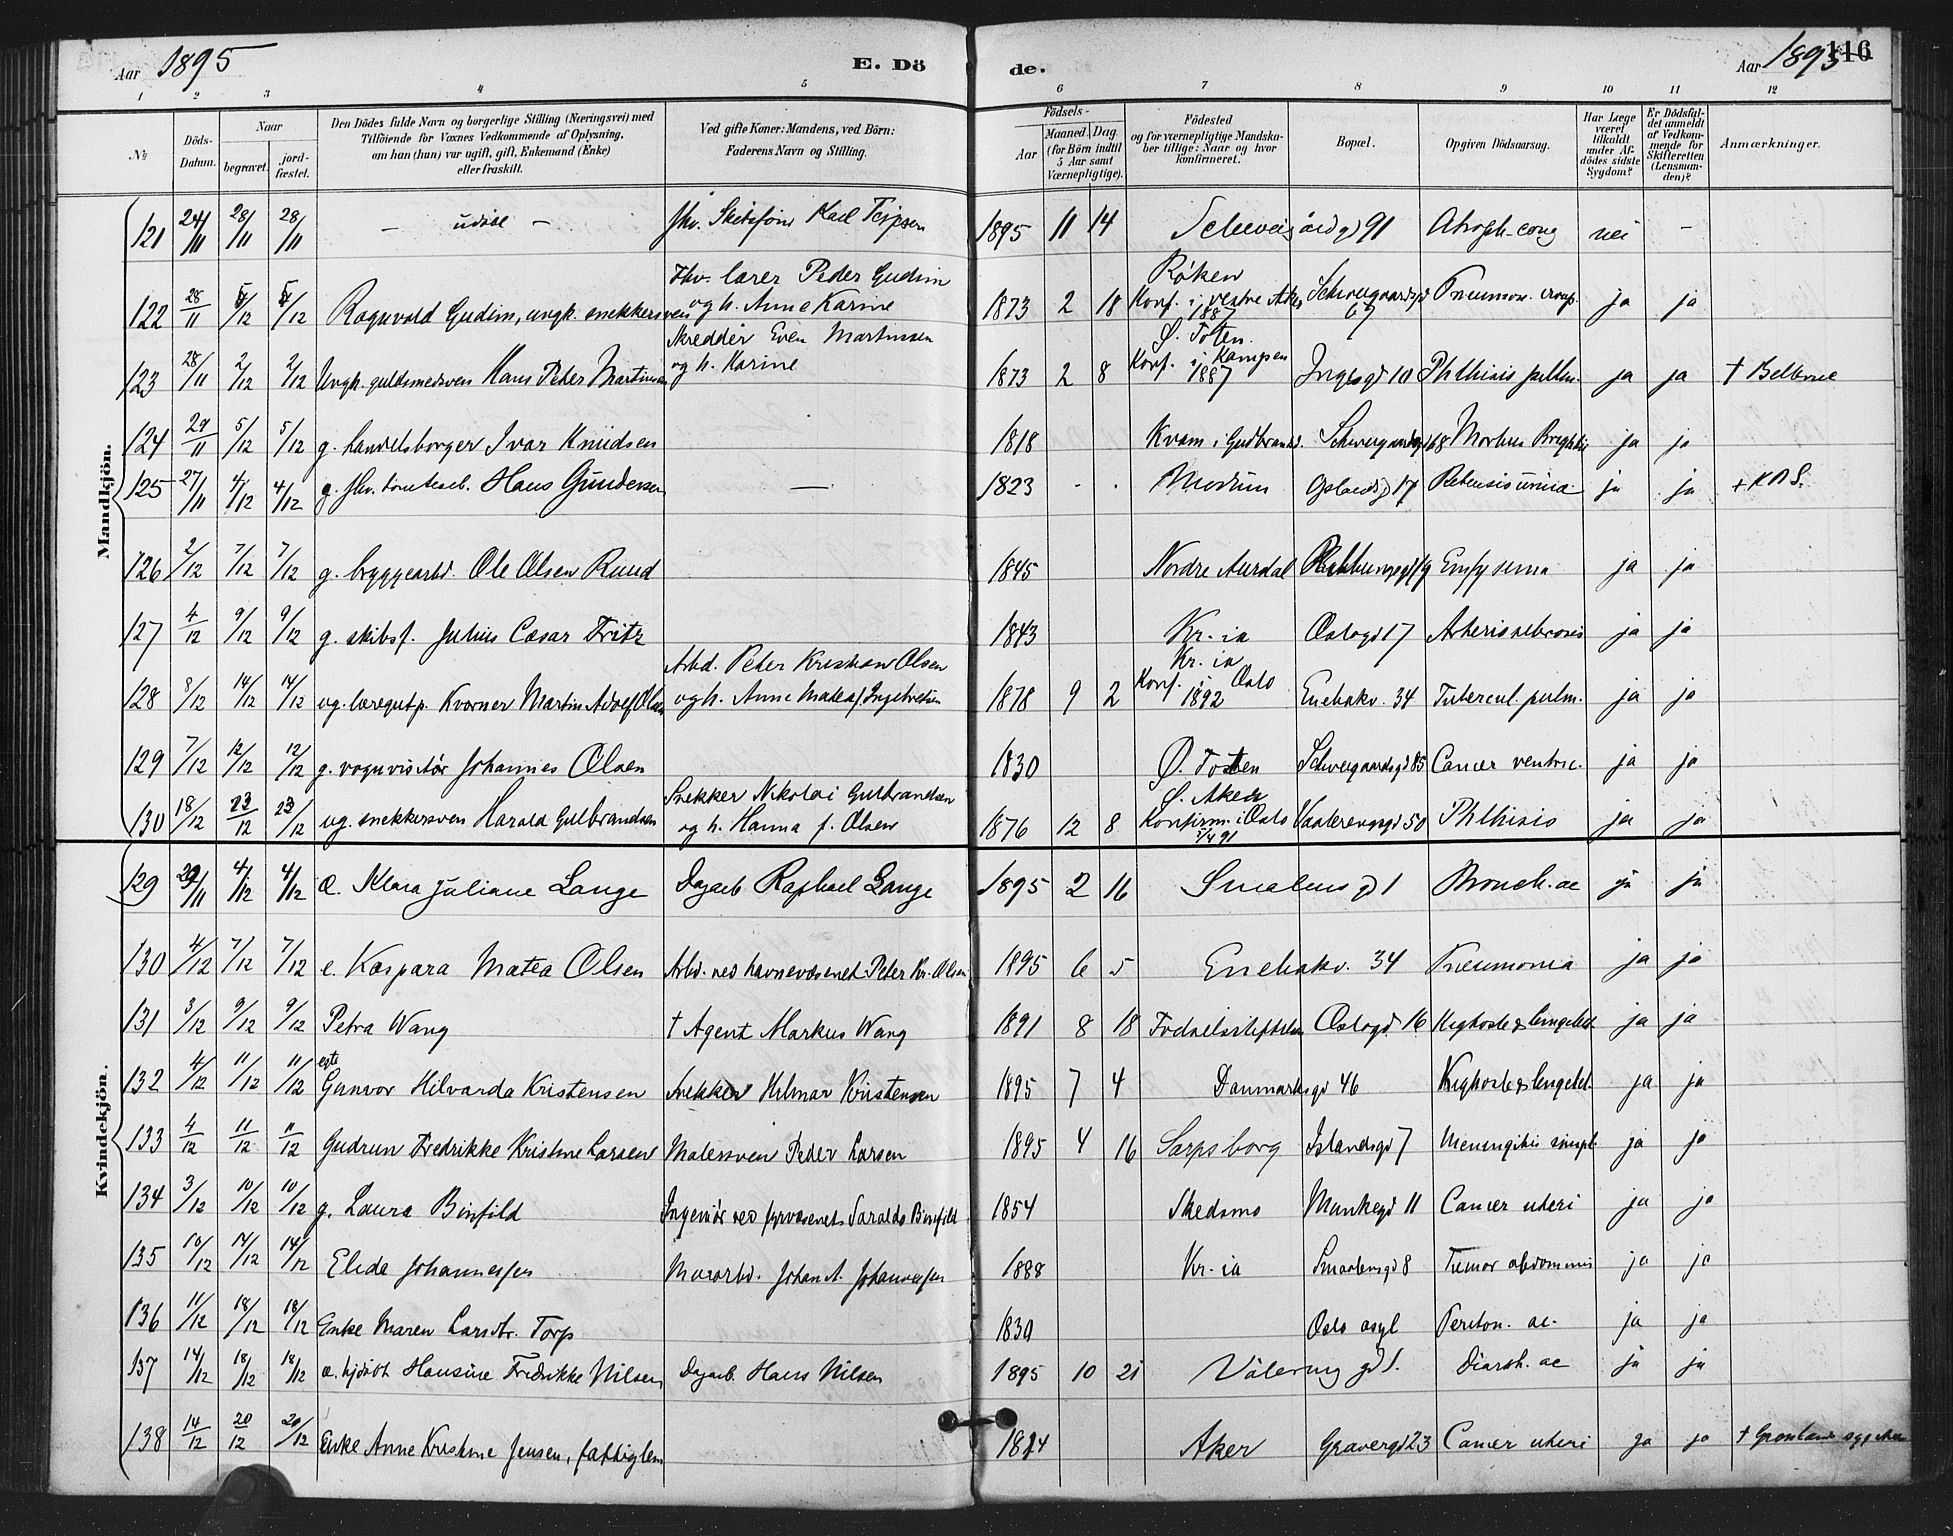 Aar 1895 E. Dö de. Aar 1895 116
1 2 3 4 5 6 7 8 9 10 11 12
№ Döds-Datum. Naar begravet. jord-fæstet. Den Dödes fulde Navn og borgerlige Stilling (Næringsvei) med Tilföiende for Voxnes Vedkommende af Oplysning, om han (hun) var ugift, gift, Enkemand (Enke) eller fraskilt. Ved gifte Koner: Mandens, ved Börn: Faderens Navn og Stilling. Födsels- Aar Maaned. Dag. (for Börn indtil 5 Aar samt Værnepligtige). Födested og for værnepligtige Mandskaber tillige: Naar og hvor konfirmeret. Bopæl. Opgiven Dödsaarsag. Har Læge været tilkaldt under Afdödes sidste Sygdom? Er Dödsfaldet anmeldt af Vedkommende for Skifteretten (Lensmanden)? Anmærkninger.
Mandkjön.
121 24/11 28/11 28/11 — udöbt — fhv. Karl 1895 11 14 91 Atroph. cong nei —
Fhv. lærer Peder Gudim Røken
122 28/11 5/12 5/12 Ragnvald Gudim, ungk. snekkersven og h. Anne Karine 1873 2 18 Konf. i vestre Aker 1887 Schweigaardsgd 67 Pneumon. croup. ja ja
Skredder Even Martinsen Ø. Toten
123 28/11 2/12 2/12 Ungk. guldsmedsven Hans Peter Martinsen og h. Karine 1873 2 8 Konf. i Kampen 1887 Ingesgd 10 Phthisis pulm. ja ja †
124 29/11 5/12 5/12 g. handelsborger Ivar Knudsen 1818 Kvam i Gudbrandsd. Schweigaardsgd 68 Morbus Brightii ja ja
125 27/11 4/12 4/12 g. fhv. Hans Gundersen — 1823 Modum 17 ja ja
126 2/12 7/12 7/12 g. bryggearbd. Ole Olsen Ruud 1845 Nordre Aurdal Emfysema ja ja
127 4/12 9/12 9/12 g. skibsf. Julius Cæsar Fritz 1843 Kr.ia Oslogd 17 ja ja
Arbd. Peter Kristian Olsen Kr.ia
128 8/12 14/12 14/12 ug. Kvorner Martin Adolf Olsen og h. Anne Matea f. Ingebretsen 1878 9 2 Konf. i Oslo 1892 Enebakv. 34 Tubercul. pulm. ja ja
129 7/12 12/12 12/12 g. vognvisitør Johannes Olsen 1830 Ø. Toten Schweigaardsgd 85 Cancer ventric. ja ja
Snekker Nikolai Gulbrandsen Ø. Aker
130 18/12 23/12 23/12 ug. snekkersven Harald Gulbrandsen og h. Hanna f. Olsen 1876 12 8 Konfirm. i Oslo 91 Vaalerenggd 50 Phthisis ja ja
Kvindekjön.
129 29/11 4/12 4/12 æ. Klara Juliane Lange Dagarb Raphael Lange 1895 2 16 Smalens gd 1 Bronch. ac ja ja
130 4/12 7/12 7/12 e. Kaspara Matea Olsen Arbd. ved havnevæsenet Peter Kr. Olsen 1895 6 5 Enebakv. 34 Pneumonia ja ja
131 3/12 9/12 9/12 Petra Wang † Agent Markus Wang 1891 8 18 Fødselsstiftelsen Oslogd 16 Kighoste & lungebet. ja ja
132 4/12 11/12 11/12 egte Gunvor Hilvarda Kristensen Snekker Hilmar Kristensen 1895 7 4 Danmarksgd 46 Kighoste & lungebet. ja ja
133 4/12 11/12 11/12 Gudrun Fredrikke Kristine Larsen Malersven Peder Larsen 1895 4 16 Sarpsborg Islandsgd 7 Meningitis simpl. ja ja
134 3/12 10/12 10/12 g. Laura Binfild Ingeniør ved fyrvæsenet Binfild 1854 Skedsmo Munkegd 11 Cancer uteri ja ja
135 10/12 14/12 14/12 Elida Johannessen Murarbd. Johan A. Johannessen 1888 Kr.ia Smaalensgd 8 Tumor abdominis ja ja
136 11/12 18/12 18/12 Enke Maren Larsdtr. Torp 1830 Oslo asyl Periton. ac. ja ja
137 14/12 18/12 18/12 æ. hjdöbt Hansine Fredrikke Nilsen Dagarb. Hans Nilsen 1895 10 21 Vålereng gd 1. Diarrh. ac ja ja
138 14/12 20/12 20/12 Enke Anne Kristine Jensen, fattiglem 1824 Aker Gravergd 23 Cancer uteri ja ja † Grønlands sygehus